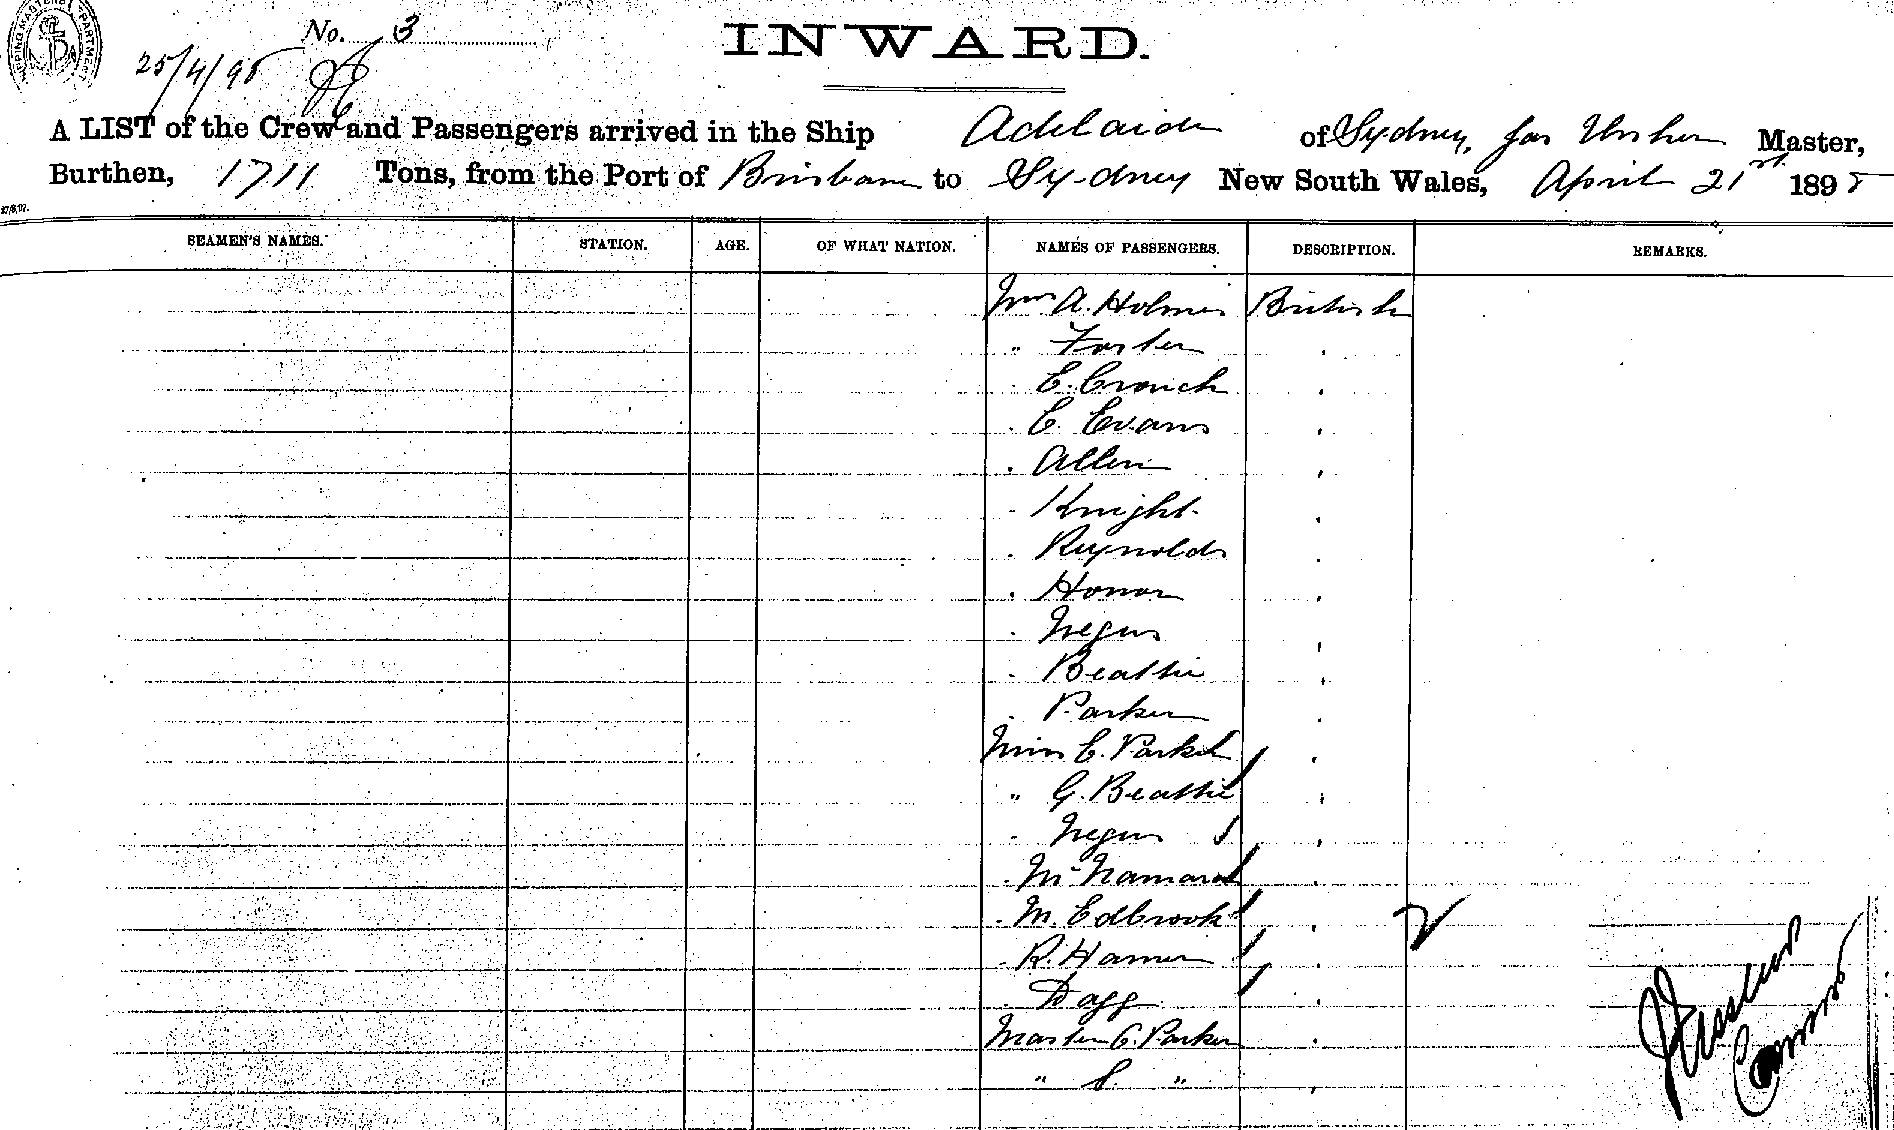 No. 3
25/4/98
INWARD.
A LIST of the Crew and Passengers arrived in the Ship Adelaide of Sydney, Jas Master,
Burthen, 1711 Tons, from the Port of Brisbane to Sydney New South Wales, April 21st 1898
SEAMEN'S NAMES. STATION. AGE. OF WHAT NATION. NAMES OF PASSENGERS. DESCRIPTION. REMARKS.
Mrs A. Holmes British
" Foster "
" E. Crouch "
" C. Evans "
" Allen "
" Knight "
" Reynolds "
" Honor "
" Negus "
" Beattie "
" Parker "
Miss E. Parker "
" G. Beattie "
" Negus "
" McNamara "
" M. Edbrook "
" R. Hamer "
" Dagg "
Master G. Parker "
" S. " "